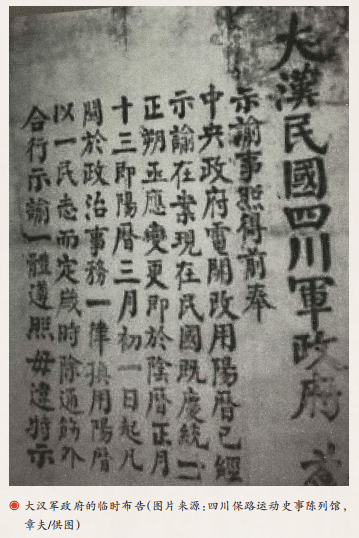 大漢民國四川軍政府
示諭事照得前奉
中央政府電開改用陽曆已經
示諭在案現在民國既慶統一
正朔亟應變更即於陰曆正月
十三即陽曆三月初一日起凡
關於政治事務一律填用陽曆
以一民志而定歲時除通飭外
合行示諭一體遵照毋違特示
大汉军政府的临时布告(图片来源:四川保路运动史事陈列馆,
章夫/供图)